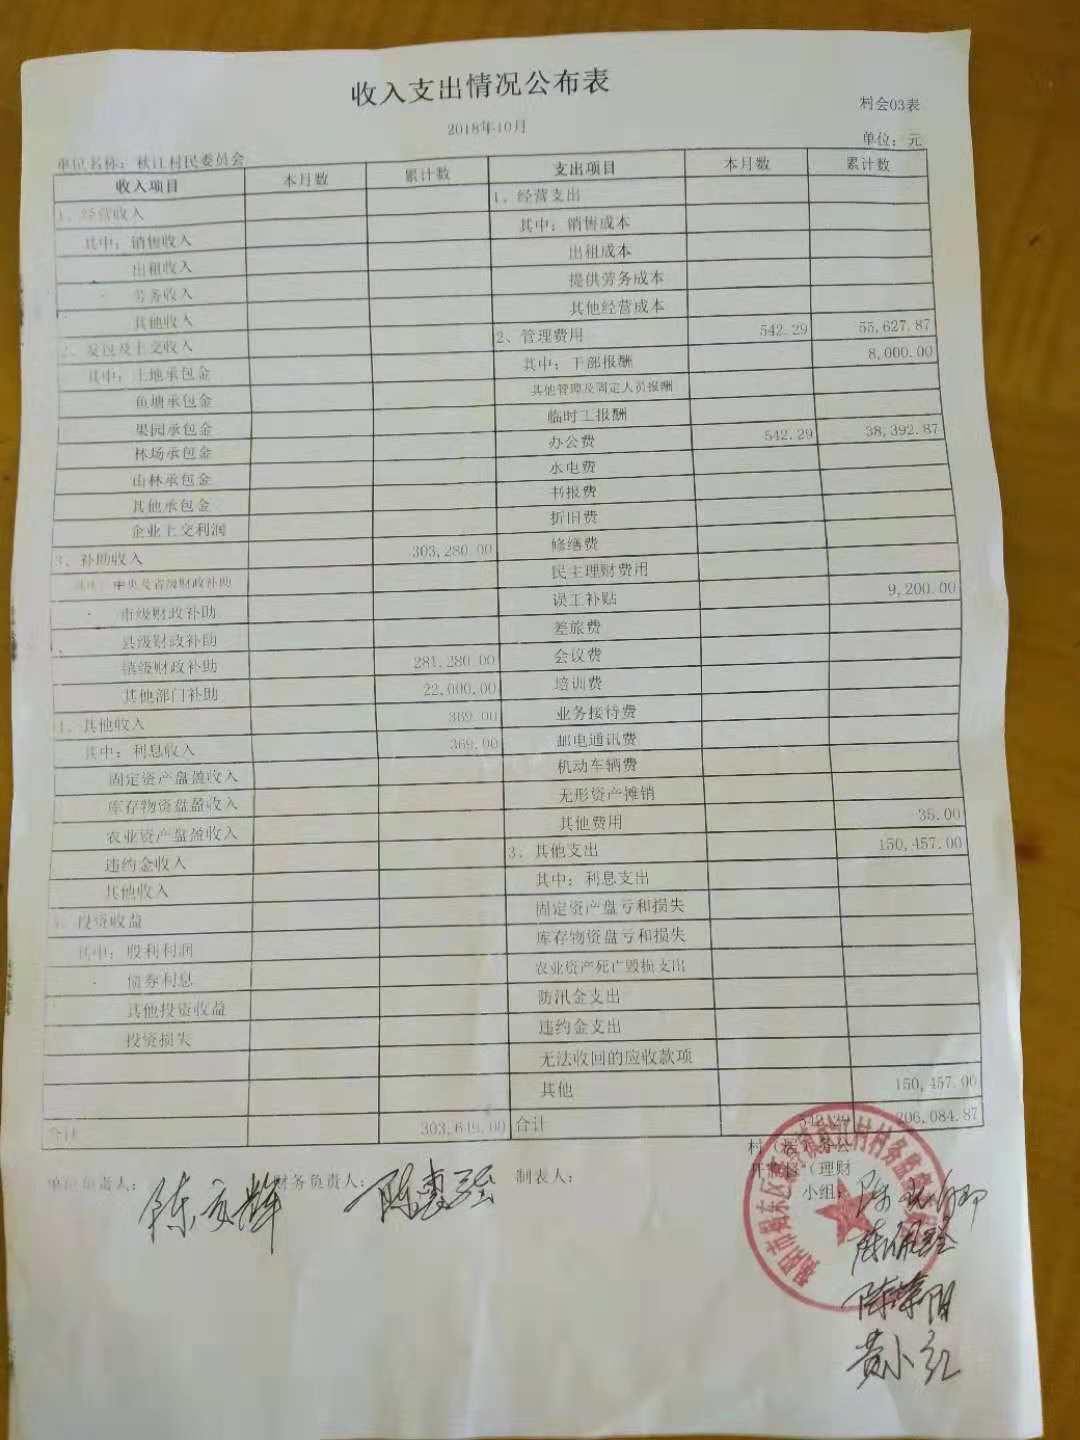 收入支出情况公布表
村会03表
2018年10月
单位名称：秋江村民委员会 单位：元
收入项目 本月数 累计数 支出项目 本月数 累计数
1、经营收入 1、经营支出
其中：销售收入 其中：销售成本
出租收入 出租成本
劳务收入 提供劳务成本
其他收入 其他经营成本
2、发包及上交收入 2、管理费用 542.29 55,627.87
其中：土地承包金 其中：干部报酬 8,000.00
鱼塘承包金 其他管理及固定人员报酬
果园承包金 临时工报酬
林场承包金 办公费 542.29 38,392.87
山林承包金 水电费
其他承包金 书报费
企业上交利润 折旧费
3、补助收入 303,280.00 修缮费
其中：中央及省级财政补助 民主理财费用
市级财政补助 误工补贴 9,200.00
县级财政补助 差旅费
镇级财政补助 281,280.00 会议费
其他部门补助 22,000.00 培训费
4、其他收入 369.00 业务接待费
其中：利息收入 369.00 邮电通讯费
固定资产盘盈收入 机动车辆费
库存物资盘盈收入 无形资产摊销
农业资产盘盈收入 其他费用 35.00
违约金收入 3、其他支出 150,457.00
其他收入 其中：利息支出
5、投资收益 固定资产盘亏和损失
其中：股利利润 库存物资盘亏和损失
债券利息 农业资产死亡毁损支出
其他投资收益 防汛金支出
投资损失 违约金支出
无法收回的应收款项
其他 150,457.00
合计 303,649.00 合计 542.29 206,084.87
单位负责人： 财务负责人： 陈惠强 制表人： 村（居）务公
开监督（理财
）小组：
黄小红